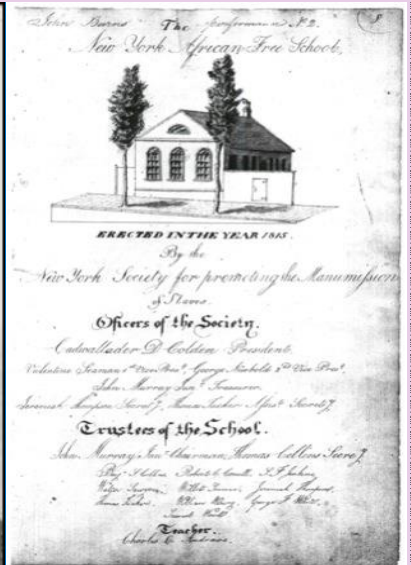 John Burns The performance No 2. 8
New York African Free School,
ERECTED IN THE YEAR 1815.
By the
New York Society for promoting the Manumission
of Slaves.
Officers of the Society.
Cadwallader D Colden President.
Valentine Seaman 1st Vice Prest, George Newbold 2nd Vice Prest.
John Murray Junr Treasurer.
Jeremiah Thompson Secrety, Thomas Tucker Assist Secrety
Trustees of the School.
John Murray Junr Chairman, Thomas Collins Secrey
Jeremiah Thompson,
Thomas Tucker,
Teacher.
Charles C. Andrews.